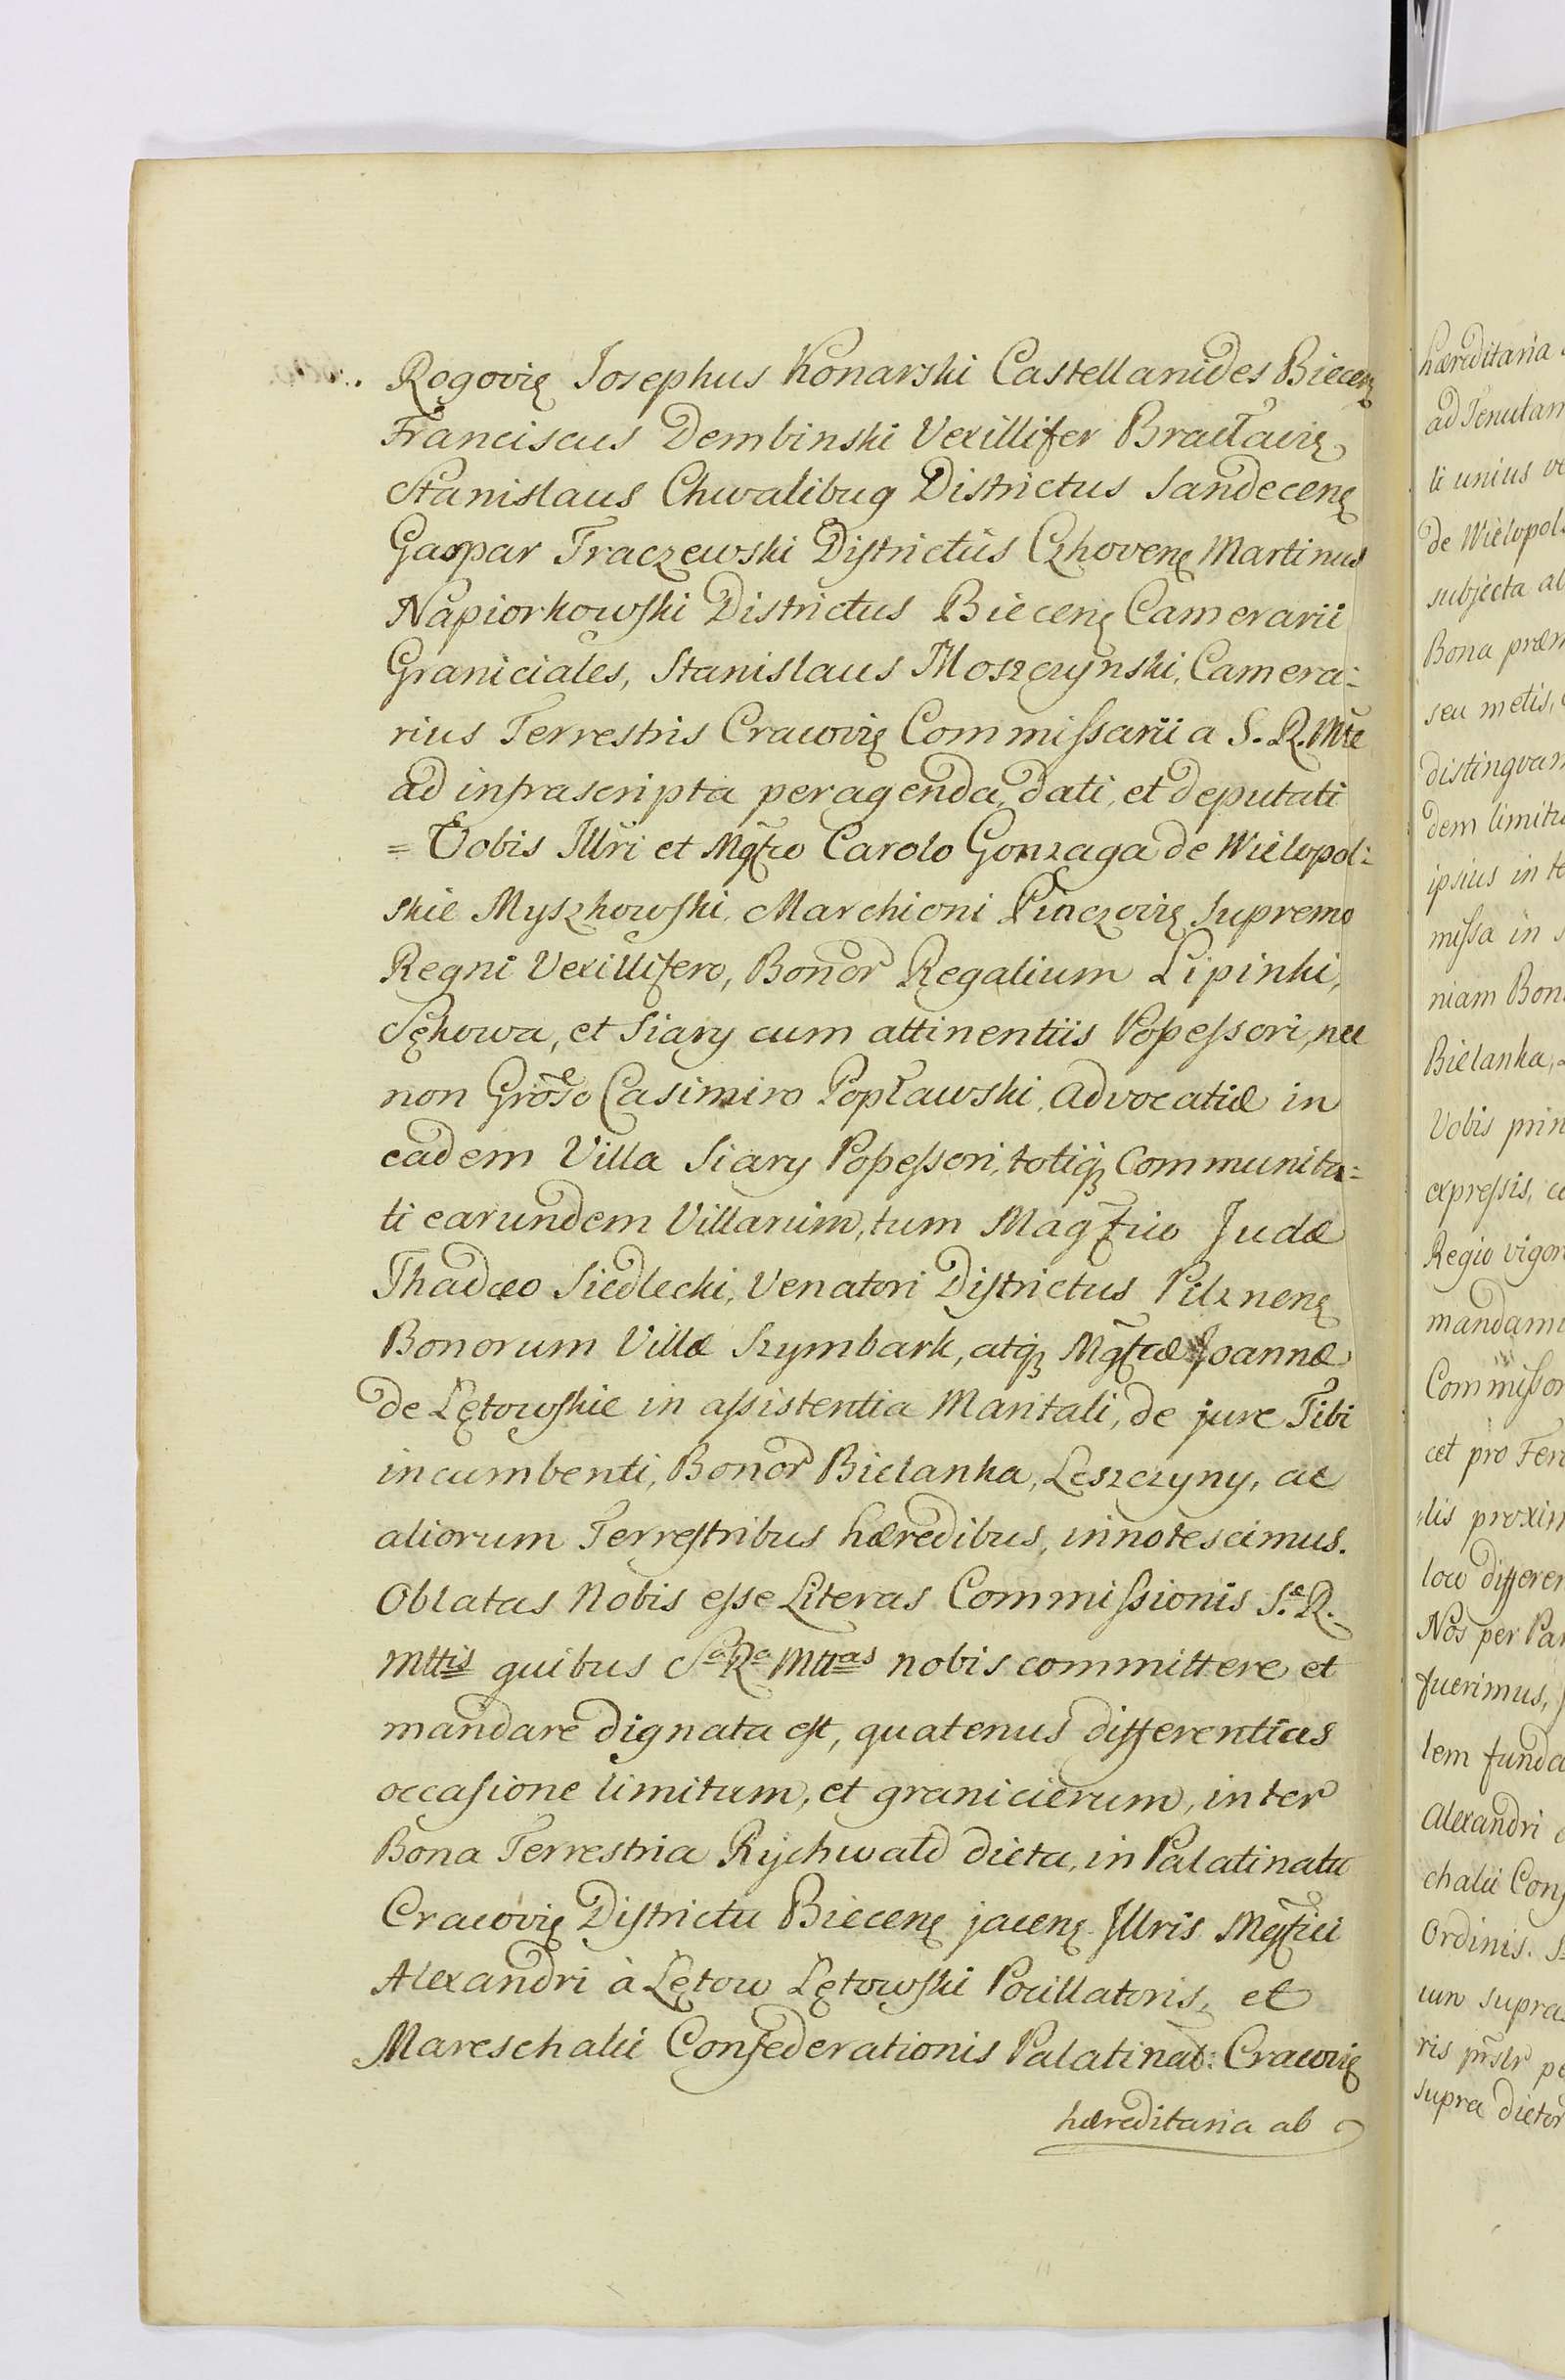 Rogovię Josephus Konarski Castellanides Biecenę
Franciscus Dembinski Vexillifer Bracłavię
Stanislaus Chwalibug Districtus Sandecenę
Gaspar Traczewski Districtus Czhovenę Martinus
Napiorkowski Districtus Biecenę Camerarii
Graniciales, Stanislaus Moszczynski, Camera=
rius Terrestris Cracovię Commissarii a S. R. Mte
ad infrascripta peragenda, dati, et deputati
= Vobis Illri et Mgfco Carolo Gonzaga de Wielopol=
skie Myszkowski, Marchioni Pinczovię Supremo
Regni Vexillifero, Bonor Regalium Lipinki,
Sękowa, et Siary cum attinentiis Possessori, nec
non Groso Casimiro Popławski, Advocatiæ in
eadem Villa Siary Possessori, totiq Communita=
ti earundem Villarum, tum Magfico Judæ
Thadæo Siedlecki, Venatori Districtus Pilznenę
Bonorum Villæ Szymbark, atq Mgfcæ Joannæ
de Lętowskie in assistentia Maritali, de jure Tibi
incumbenti, Bonor Bielanka, Leszczyny, ac
aliorum Terrestribus hæredibus, innotescimus.
Oblatas Nobis esse Literas Commissionis S. R.
Mttis quibus Sa Ra Mttas nobis committere et
mandare dignata est, quatenus differentias
occasione limitum, et granicierum, inter
Bona Terrestria Rychwałd dicta, in Palatinatu
Cracovię Districtu Biecenę jacenę Illris Mgfici
Alexandri à Lętow Lętowski Pocillatoris, et
Mareschalii Confederationis Palatinat: Cracovię
hæreditaria ab
hæreditaria
ad Tenutam
li unius
de Wielopols
subjecta
Bona
seu metis,
dem
ipsius in
missa in
niam Bon
Bielanka,
Vobis
expressis,
Regio
mandam
Commissor
cet pro
lis proxim
loco differen
Nos per
fuerimus,
lem funda
Alexandri
chalii
Ordinis.
supra
ris
supra dictor